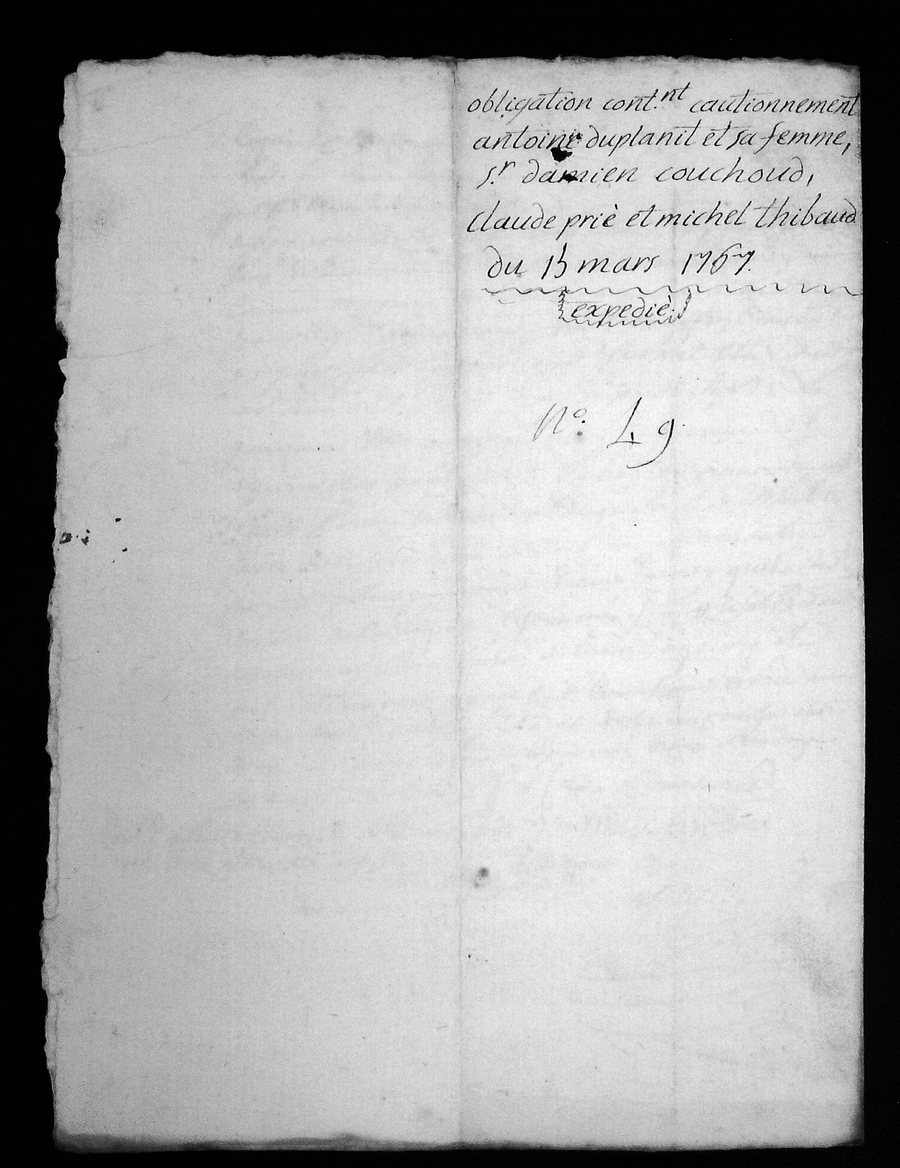 obligation cont.nt cautionnement
antoine duplanil et sa femme,
s.r damien couchoud,
claude priè et michel thibaud
du 15 mars 1767.
expediè.
N.o 49